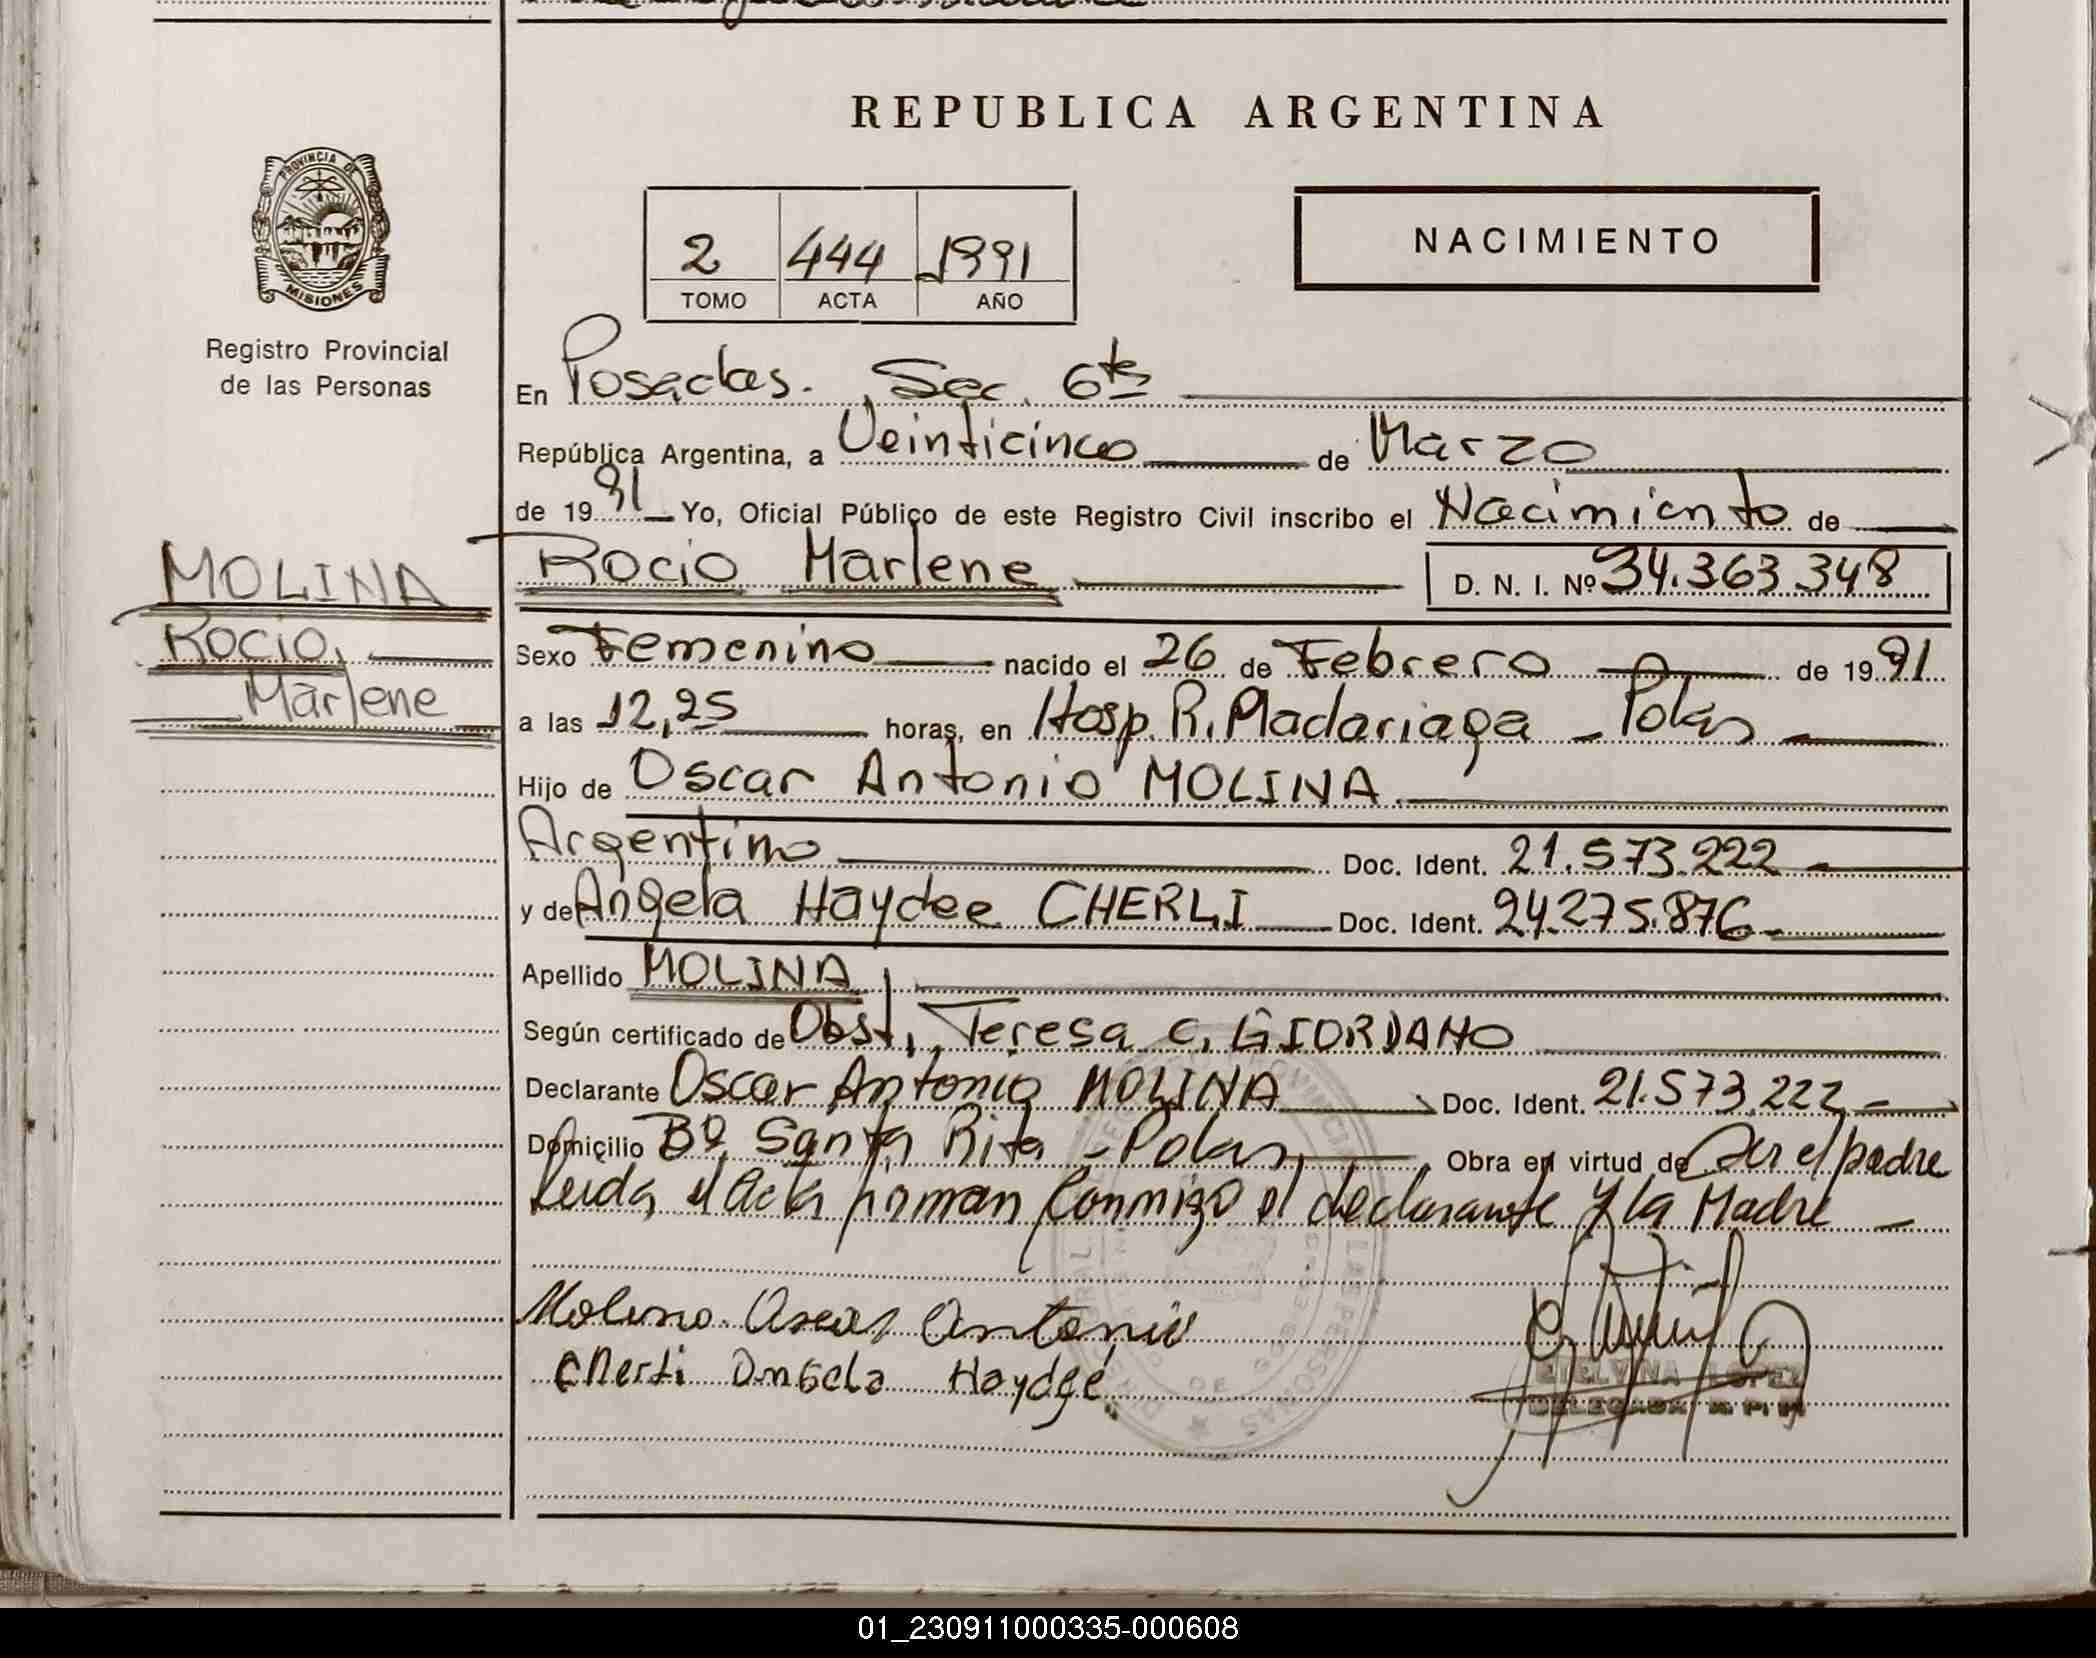 REPUBLICA ARGENTINA
PROVINCIA DE
MISIONES
Registro Provincial
de las Personas
2 444 1991
TOMO ACTA AÑO
NACIMIENTO
En Posadas. Sec. 6ta
República Argentina, a Veinticinco de Marzo
de 1991 Yo, Oficial Público de este Registro Civil inscribo el Nacimiento de
MOLINA
Rocio
Marlene
Rocio Marlene D. N. I. Nº 34.363.348
Sexo Femenino nacido el 26 de Febrero de 1991
a las 12,25 horas, en Hosp. R. Madariaga - Pdas
Hijo de Oscar Antonio MOLINA
Argentino Doc. Ident. 21.573.222
y de Angela Haydee CHERLI Doc. Ident. 24.275.876
Apellido MOLINA
Según certificado de Obst, Teresa C. GIORDANO
Declarante Oscar Antonio MOLINA Doc. Ident. 21.573.222
Domicilio Bº Santa Rita - Pdas, Obra en virtud de Ser el padre
Leida el Acta firman conmigo el declarante y la Madre
Molina Oscar Antonio
Cherli Angela Haydeé
ETELVINA LOPEZ
DELEGADA
01_230911000335-000608